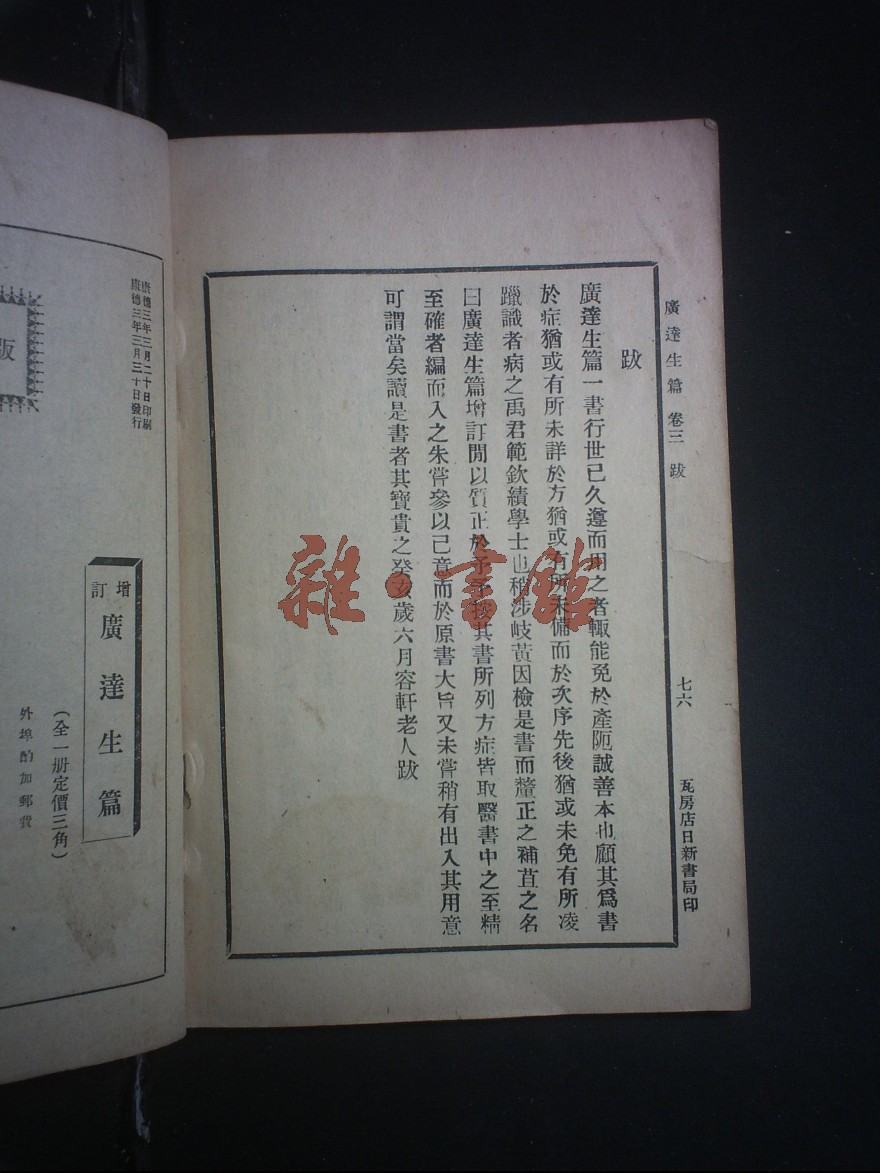 廣達生篇 卷三 跋 七六 瓦房店日新書局印
跋
廣達生篇一書行世已久遵而用之者輒能免於產阨誠善本也顧其爲書
於症猶或有所未詳於方猶或有所未備而於次序先後猶或未免有所凌
躐識者病之禹君範欽績學士也稍涉岐黃因檢是書而釐正之補苴之名
曰廣達生篇增訂閒以質正於予予按其書所列方症皆取醫書中之至精
至確者編而入之未嘗參以己意而於原書大旨又未嘗稍有出入其用意
可謂當矣讀是書者其寶貴之癸亥歲六月容軒老人跋
雜·書館
康德三年三月二十日印刷
康德三年三月三十日發行
版
增訂
廣達生篇
(全一册定價三角)
外埠酌加郵費